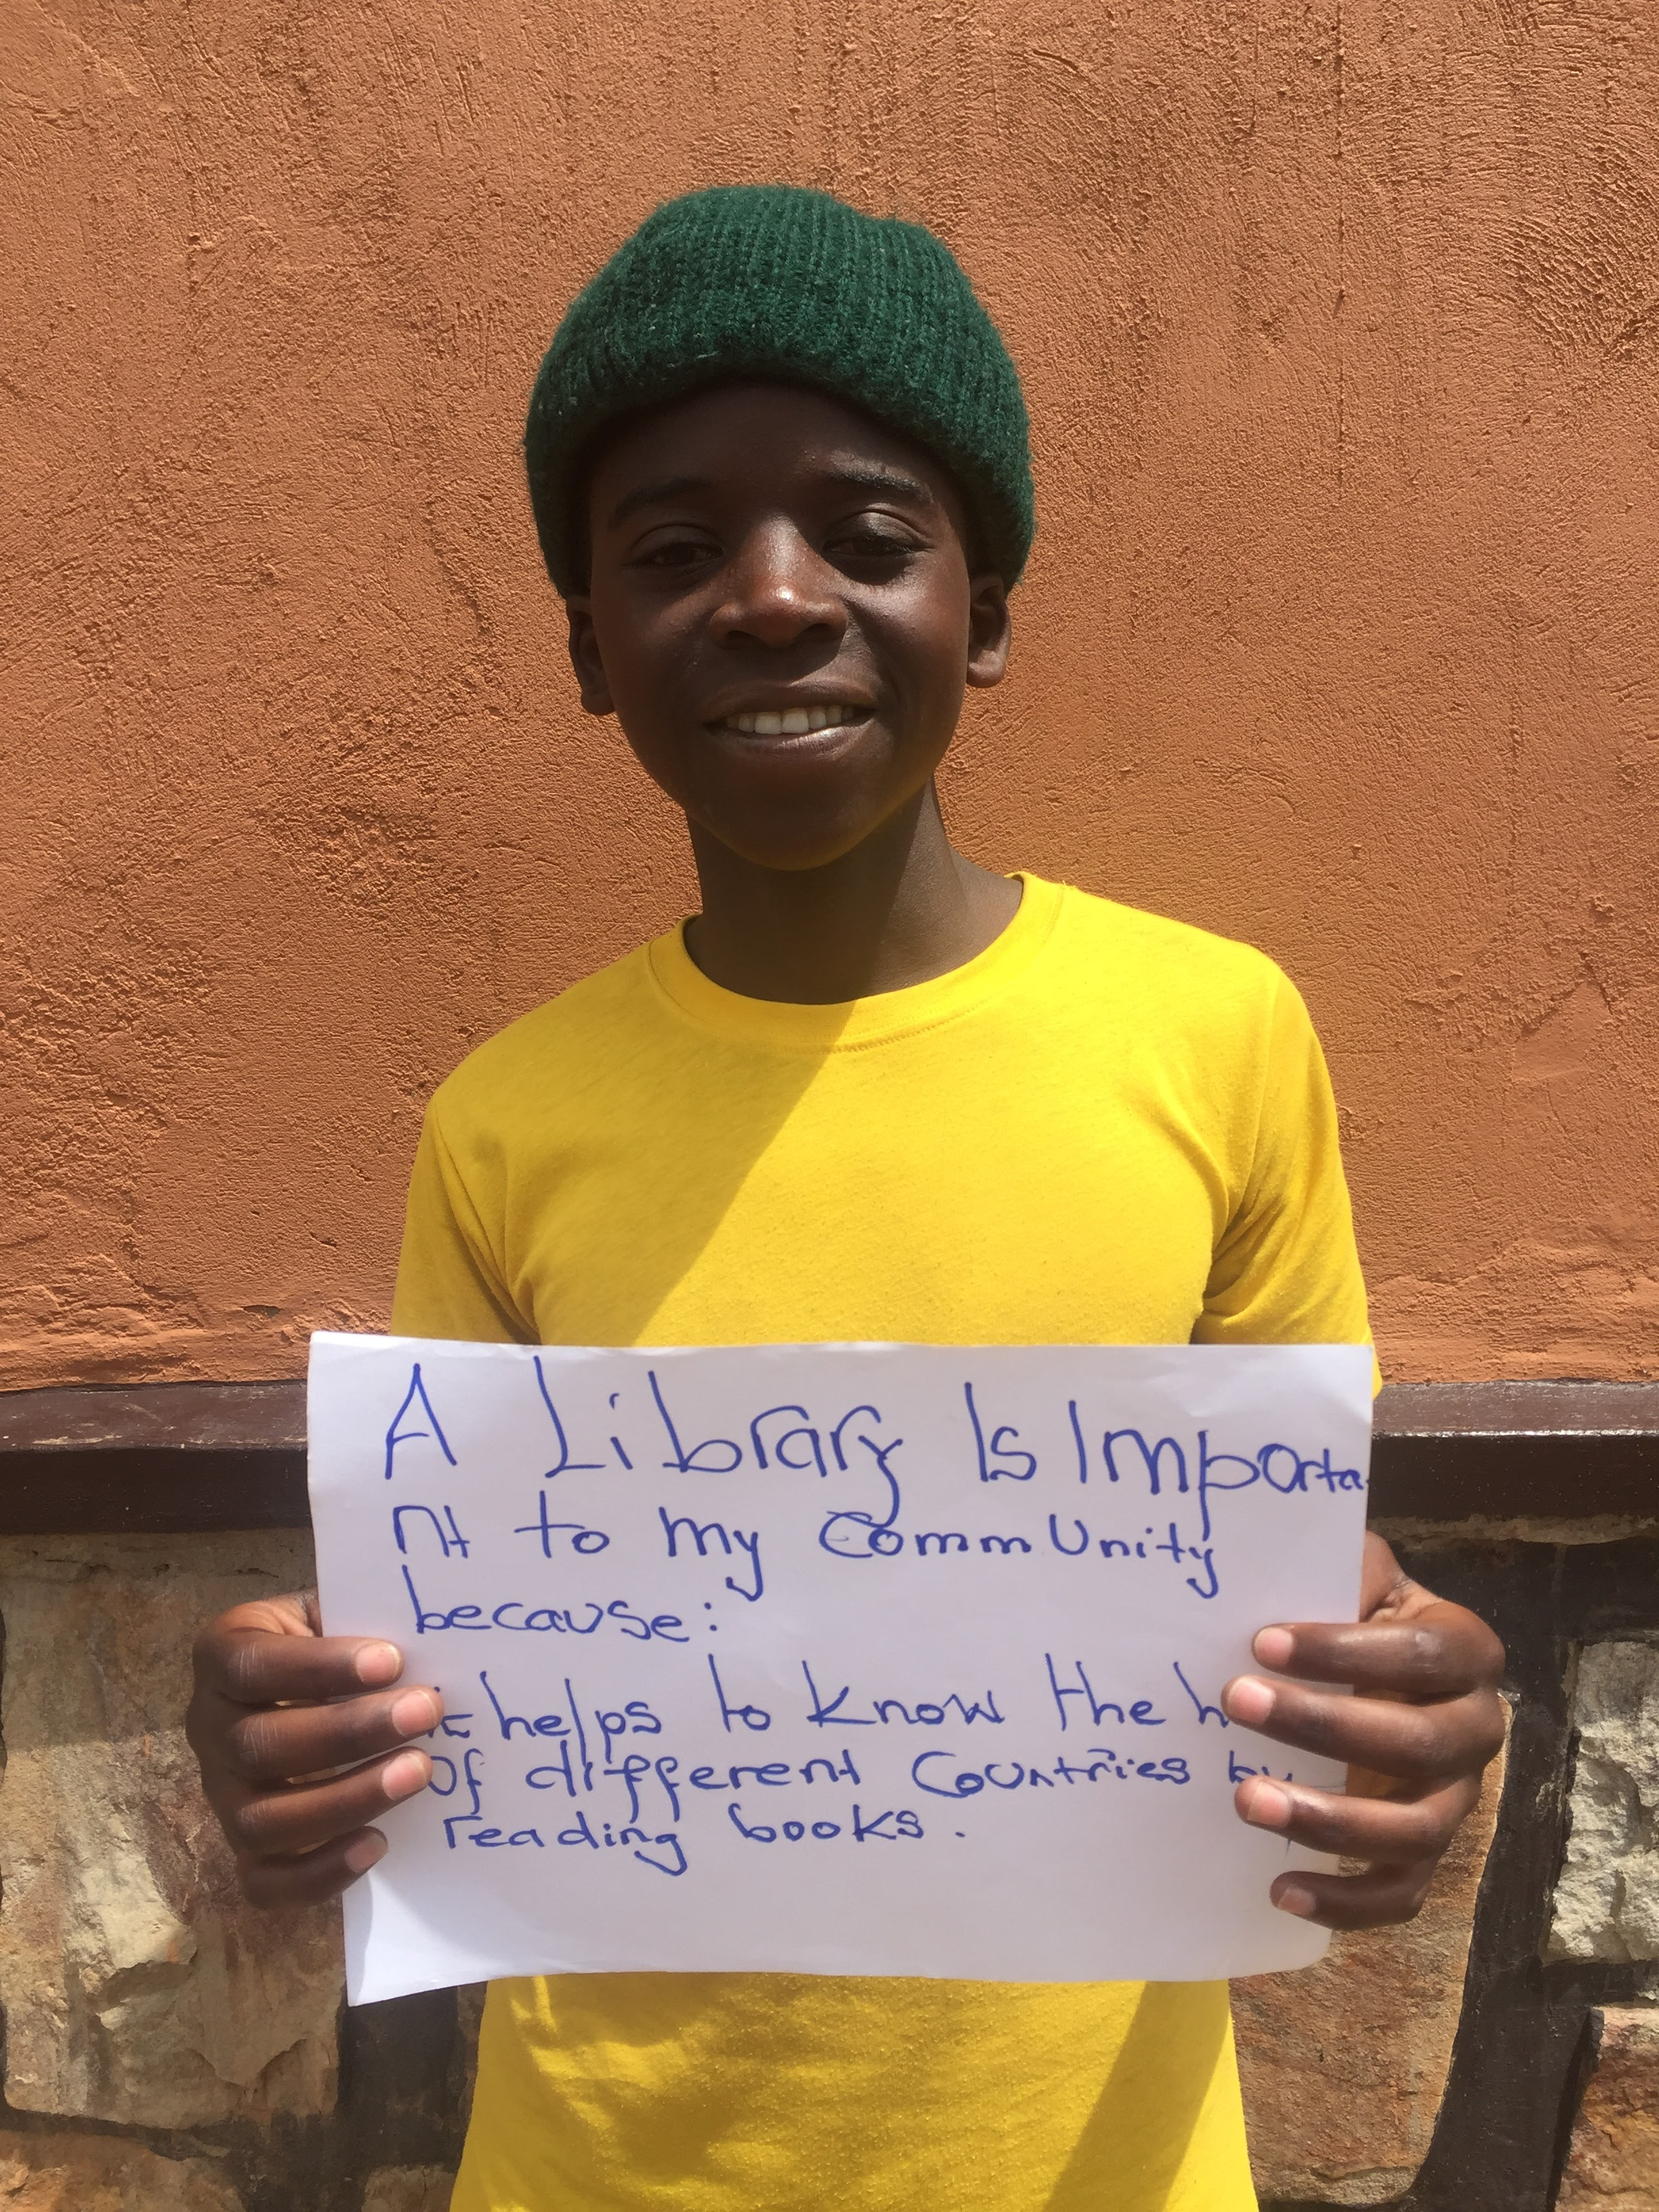 A Library Is Importa
nt to my CommUnity
because:
helps to know the
Of different Countries by
reading books.